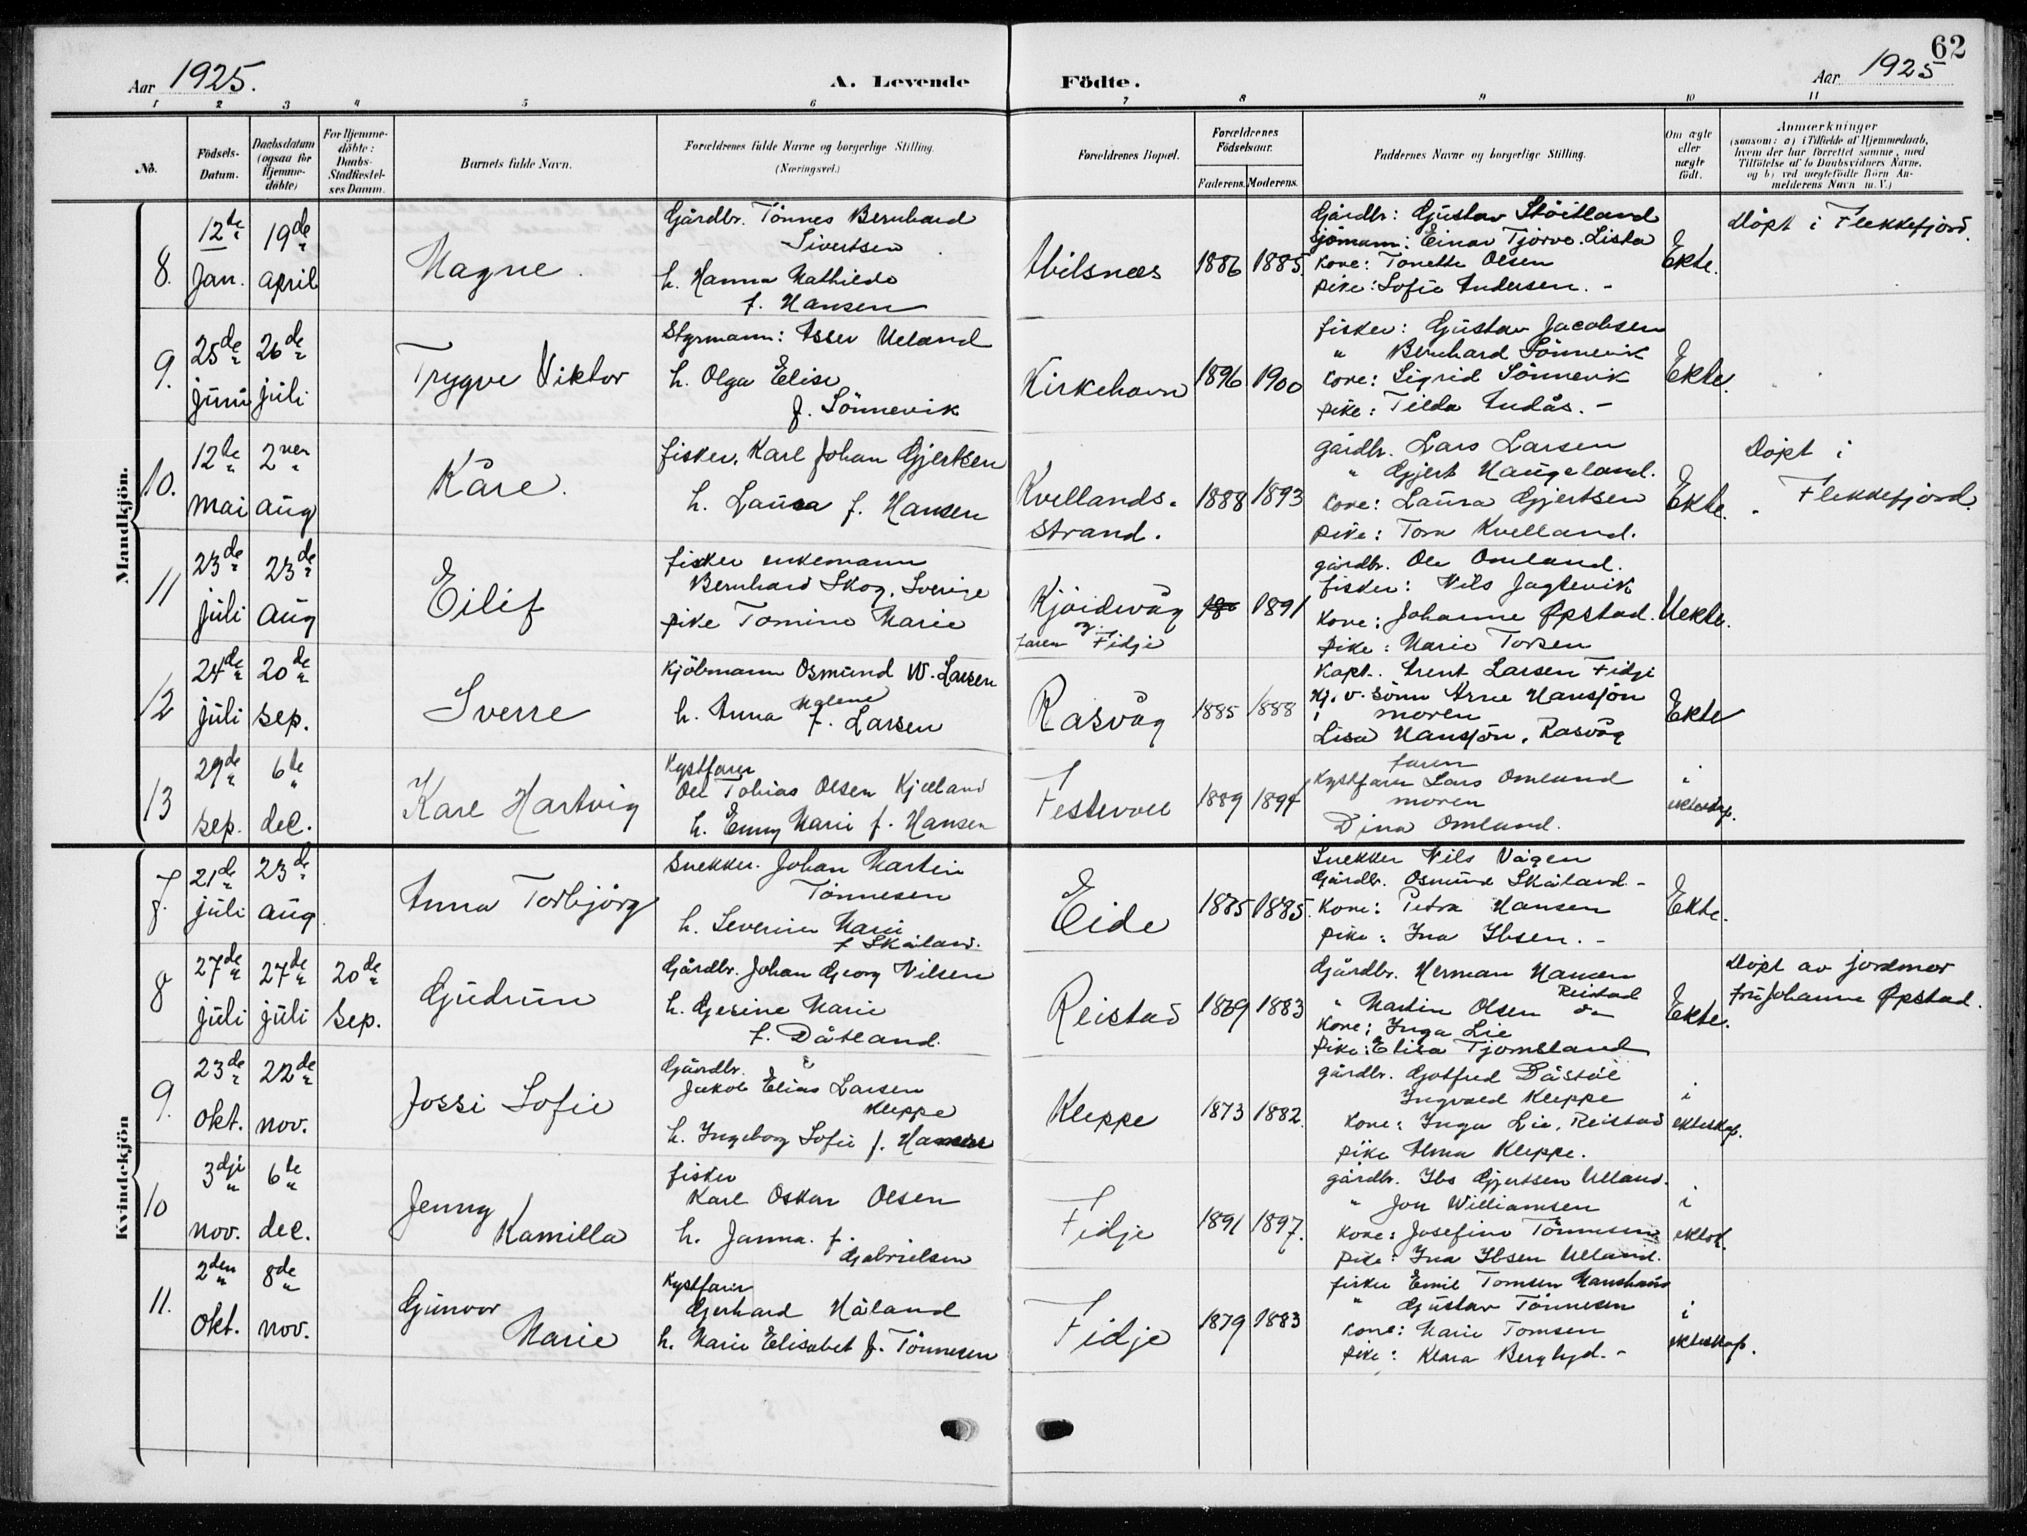 62
Aar 1925.
A. Levende Födte.
Aar 1925
1 2 3 4 5 6 7 8 9 10 11
No.
Födsels-Datum.
Daabsdatum (ogsaa for Hjemme-döbte)
For Hjemme-döbte: Daabs-Stadfæstel-ses Datum.
Barnets fulde Navn.
Forældrenes fulde Navne og borgerlige Stilling. (Næringsvei.)
Forældrenes Bopæl.
Forældrenes Födselsaar.
Faderens. Moderens.
Faddernes Navne og borgerlige Stilling.
Om ægte eller uægte födt.
Anmærkninger
(saasom: a) i Tilfælde af Hjemmedaab, hvem der har forrettet samme, med Tilföielse af to Daabsvidners Navne, og b) ved uegtefödte Börn An-melderens Navn m. V.)
Mandkjön.
8. 12te Jan. 19de april
Magne.
Gårdbr. Tönnes Bernhard
Sivertsen
h. Hanna Mathilde
f. Hansen
Abilsnæs
1886 1885
Gårdbr: Gustav Stöitland
Sjömann: Einar Tjörve. Lista
Kone: Tonette Olsen
pike: Sofie Andersen. -
Ekte.
Döpt i Flekkefjord.
9. 25de juni 26de juli
Trygve Viktor
Styrmann: Asser Ueland
h. Olga Elise
f. Sönnevik
Kirkehavn
1896 1900
fisker: Gustav Jacobsen
" Bernhard Sönnevik
Kone: Sigrid Sönnevik
pike: Tilda Andås. -
Ekte.
10. 12te mai 2nen aug
Kåre.
fisker. Karl Johan Gjertsen
h. Laura f. Hansen
Kvellands-
strand.
1888 1893
gårdbr. Lars Larsen
" Gjert Haugeland.
Kone: Laura Gjertsen
pike: Tora Kvelland.
Ekte.
Döpt i
Flekkefjord.
11 23de juli 23de aug
Eilif
fisker enkemann
Bernhard Skog, Sverige
pike Tomine Marie
Kjöidevåg
faren Fidje
18 1891
gårdbr. Ole Omland.
fisker: Nils Jagtevik
Kone: Johanne Öpstad.
pike: Marie Torsen
Uekte.
12 24de juli 20de sep.
Sverre
Kjöbmann Osmund W. Larsen
h. Anna Malene
f. Larsen
Rasvåg
1885 1888
Kapt. Arent Larsen Fidje
Kj. v. sönn Arne Hansjön
moren
Lisa Hansjön, Rasvåg
Ekte
13 29de sep. 6te dec.
Karl Hartvig
Kystfarer
Ole Tobias Olsen Kjelland
h. Emmy Marie f. Hansen
Festevoll
1889 1894
faren
Kystfarer Lars Omland
moren
Dina Omland.
i
ekteskap.
Kvindekjön
7. 21de juli 23de aug
Anna Torbjörg
Snekker. Johan Martin
Tönnesen
h. Severine Marie
f. Skåland.
Eide
1885 1885.
Snekker Nils Vågen
Gårdbr. Osmund Skåland -
Kone: Petra Hansen
pike: Ina Ibsen. -
Ekte.
8 27de juli 27de juli 20de sep.
Gudrun
Gårdbr. Johan Georg Nilsen
h. Gesine Marie
f. Dåtland.
Reistad
1879 1883
Gårdbr. Herman Hansen
Reistad
" Martin Olsen do
Kone: Inga Lie
pike: Elisa Tjomsland
Ekte.
Döpt av jordmor
fru Johanne Öpstad.
9. 23de okt. 22de nov.
Jossi Sofie
Gårdbr.
Jakob Elias Larsen
Kleppe
h. Ingeborg Sofie f. Hansen
Kleppe
1873 1882.
gårdbr. Gotfred Dåstöl
Ingvald Kleppe
Kone: Inga Lie, Reistad
pike Alma Kleppe.
i
ekteskap.
10 3dje nov. 6te dec.
Jenny
Kamilla
fisker
Karl Oskar Olsen
h. Janna. f.
Gabrielsen
Fidje
1891 1897.
gårdbr. Ibs Gjertsen Ulland.
" Jon Williamsen
Kone: Josefine Tönnesen
pike: Ina Ibsen Ulland.
i
11. 2den okt. 8de nov.
Gunvor
Marie
Kystfarer
Gerhard Håland
h. Marie Elisabet f. Tönnesen
Fidje
1879 1883
fisker Emil Tomsen Hanshaus
" Gustav Tönnesen
Kone: Marie Tomsen
pike: Klara Berglyd. -
i
ekteskap.